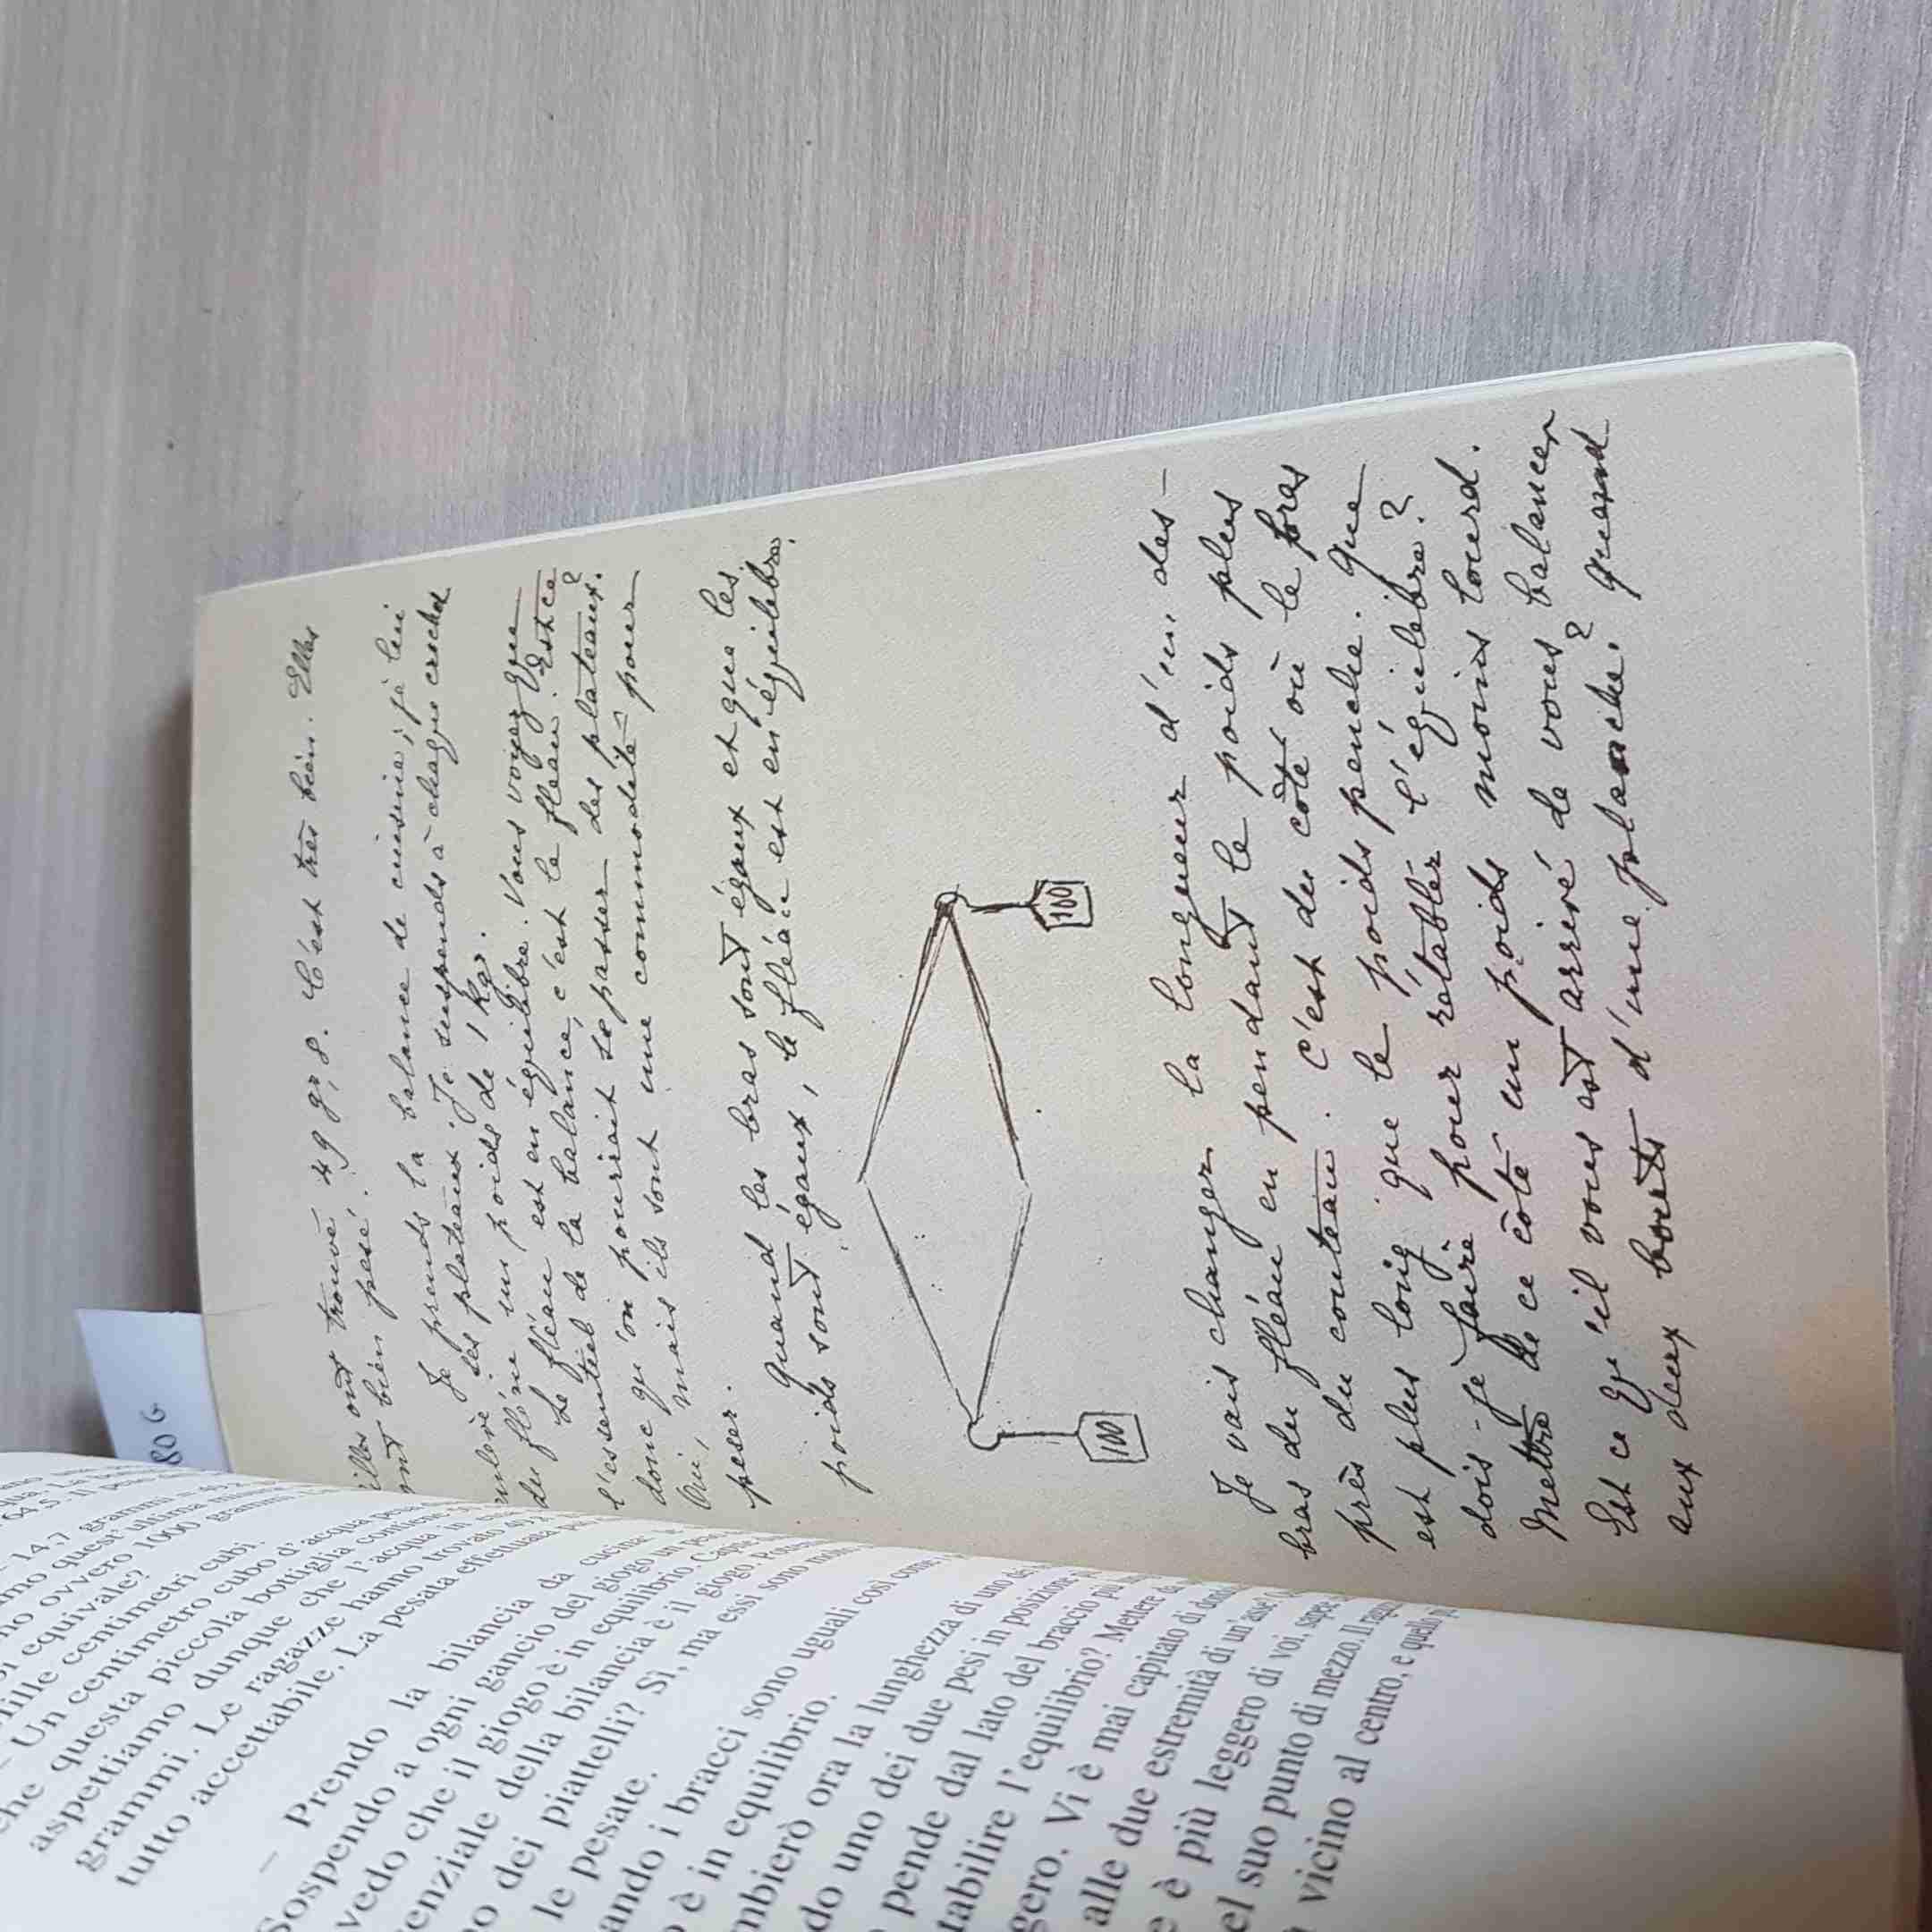 14,7 grammi = 49,
mo quest'ultima
no ovvero 1000 grammi,
equivale?
mille centimetri cubi.
— Un centimetro cubo d'acqua pesa
che questa piccola bottiglia contiene
aspettiamo dunque che l'acqua
grammi. Le ragazze hanno trovato 49,
tutto accettabile. La pesata effettuata
— Prendo la bilancia da cucina:
Sospendo a ogni gancio del giogo un
vedo che il giogo è in equilibrio.
senziale della bilancia è il giogo.
no dei piattelli? Sì, ma essi sono
le pesate.
ando i bracci sono uguali così come
è in equilibrio.
mbierò ora la lunghezza di uno dei
do uno dei due pesi in posizione
pende dal lato del braccio più
tabilire l'equilibrio? Mettere da
gero. Vi è mai capitato di
alle due estremità di un asse?
e è più leggero di voi, saper
el suo punto di mezzo. Il
vicino al centro, e quello più
80 G
Elles ont trouvé 49 gr, 8. C'est très bien. Elles
ont bien pesé.
Je prends la balance de cuisine ; je lui
enlève ses plateaux. Je suspends à chaque crochet
du fléau un poids de 1 kgr.
Le fléau est en équilibre. Vous voyez que
l'essentiel de la balance, c'est le fleau. Est ce
donc qu'on pourrait se passer des plateaux?
Oui, mais ils sont une commodité pour
peser.
Quand les bras sont égaux et que les
poids sont égaux, le fléau est en équilibre.
100
100
Je vais changer la longueur d'un des
bras du fléau en pendant le poids plus
près du couteau. C'est du côté où le bras
est plus long que le poids penche. Que
dois-je faire pour rétablir l'équilibre?
Mettre de ce côté un poids moins lourd.
Est ce qu'il vous est arrivé de vous balancer
aux deux bouts d'une planche? Quand